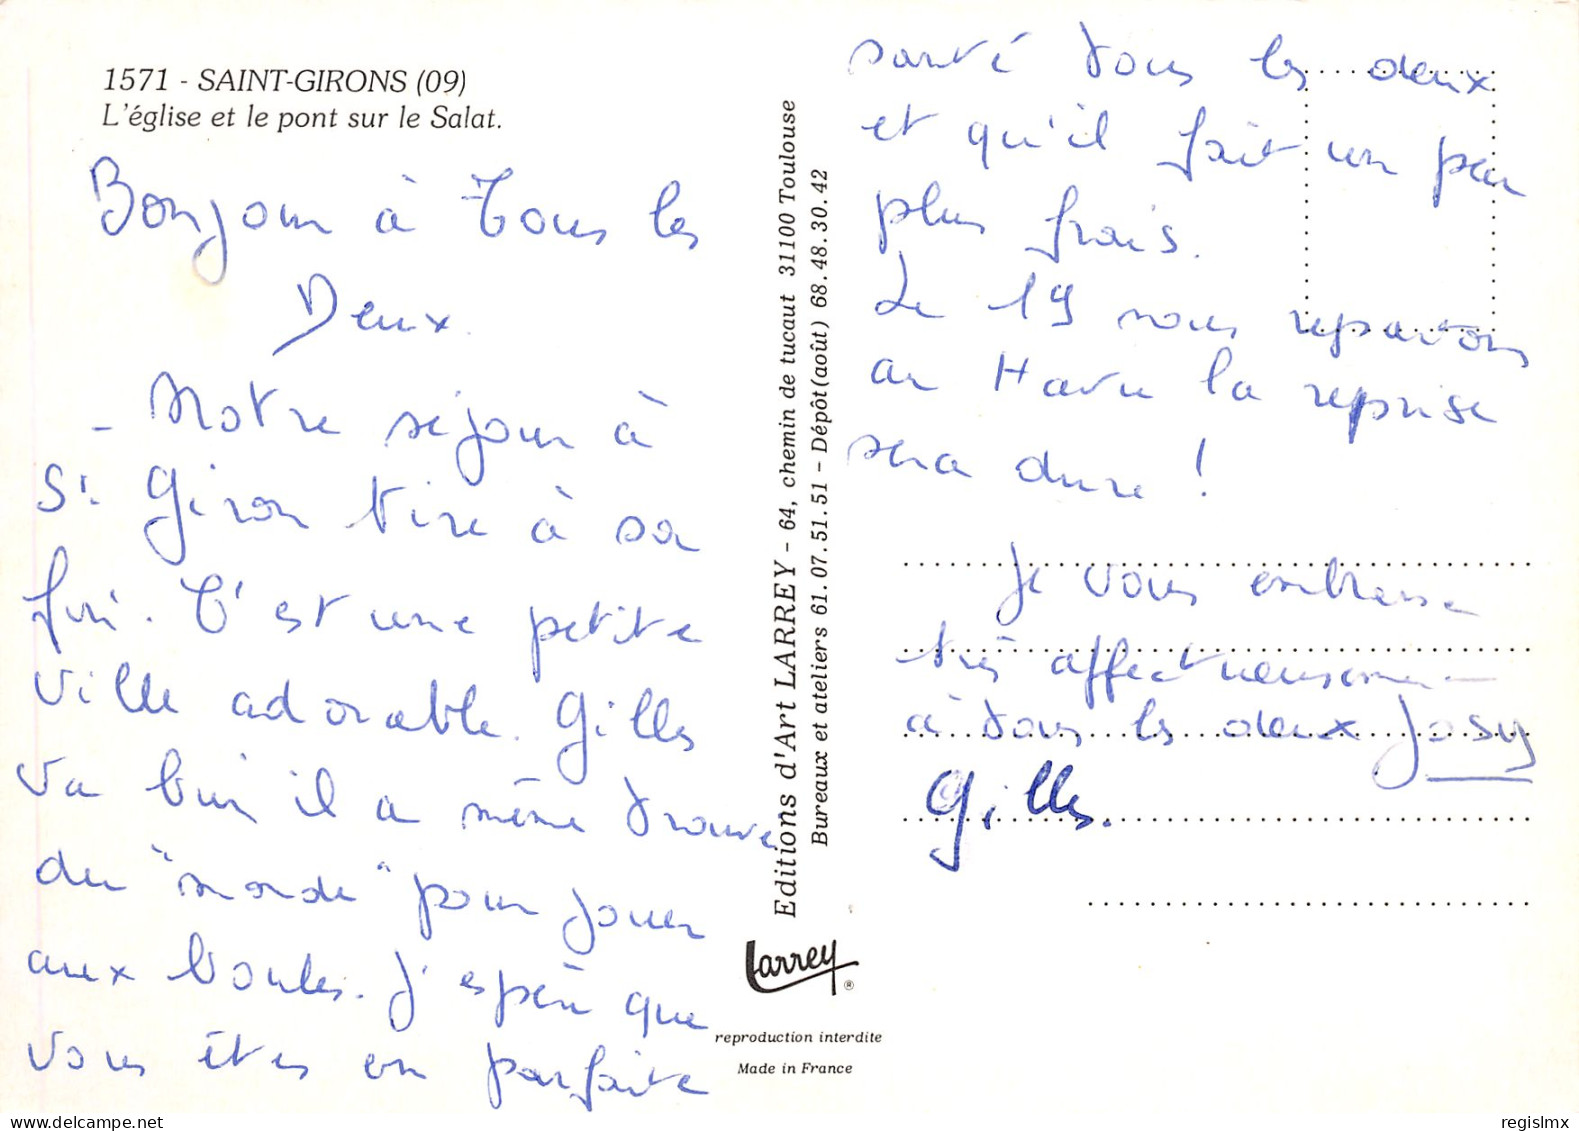 1571 - SAINT-GIRONS (09)
L'église et le pont sur le Salat.
Bonjour à Tous les
Deux.
- Notre séjour à
St Giron tire à sa
fin. C'est une petite
ville adorable. Gilles
va bien il a même trouvé
du "monde" pour jouer
aux boules. J'espère que
vous êtes en parfaite
santé tous les deux
et qu'il fait un peu
plus frais.
Le 19 nous repartons
au Havre la reprise
sera dure !
Je vous embrasse
très affectueusement
à tous les deux Josy
Gilles.
Editions d'Art LARREY - 64, chemin de tucaut 31100 Toulouse
Bureaux et ateliers 61.07.51.51 - Dépôt (août) 68.48.30.42
Larrey ®
reproduction interdite
Made in France
regislmx